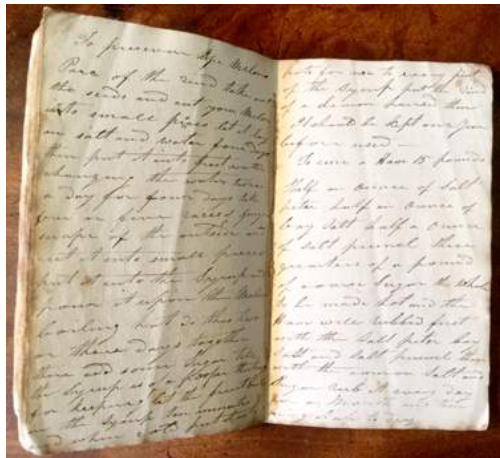 To preserve Ripe Melons
Pare of the rind take out
the seeds and cut your Melon
into small pieces let it lay
in salt and water four days
then put it into fresh water
changing the water twice
a day for four days take
four or five races ginger
scrape of the outside and
cut it into small pieces
put it into the Syrup and
pour it upon the Melon
boiling hot do this two
or three days together
then add some Sugar till
the Syrup is of a proper thickness
for keeping let the fruit boil
in the Syrup ten minutes
and when cold put it in
pots for use to every pint
of the Syrup put the rind
of a lemon pared thin
it should be kept one year
before used —
To cure a Ham 15 pounds
Half an ounce of Salt
peter half an ounce of
bay salt half a ounce
of salt prunel three
quarters of a pound
of coarse Sugar the whole
to be made hot and the
Ham well rubbed first
with the salt peter bay
salt and salt prunel then
with the common salt and
Sugar rub it every day
for a Month